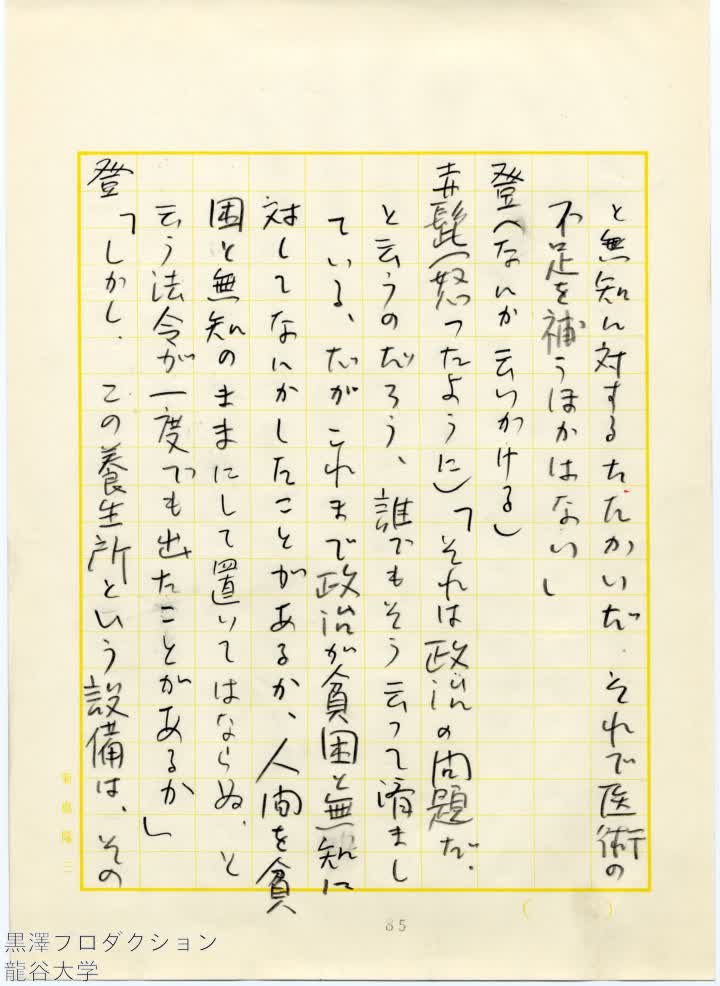 と無知に対するたたかいだ、それで医術の
不足を補うほかはない」
登へなにか云いかける）
赤髭（怒ったように）「それは政治の問題だ、
と云うのだろう、誰でもそう云って済まし
ている、だがこれまで政治が貧困と無知に
対してなにかしたことがあるか、人間を貧
困と無知のままにして置いてはならぬ、と
云う法令が一度でも出たことがあるか」
登「しかし、この養生所という設備は、その
菊島隆三
( )
85
黒澤プロダクション
龍谷大学